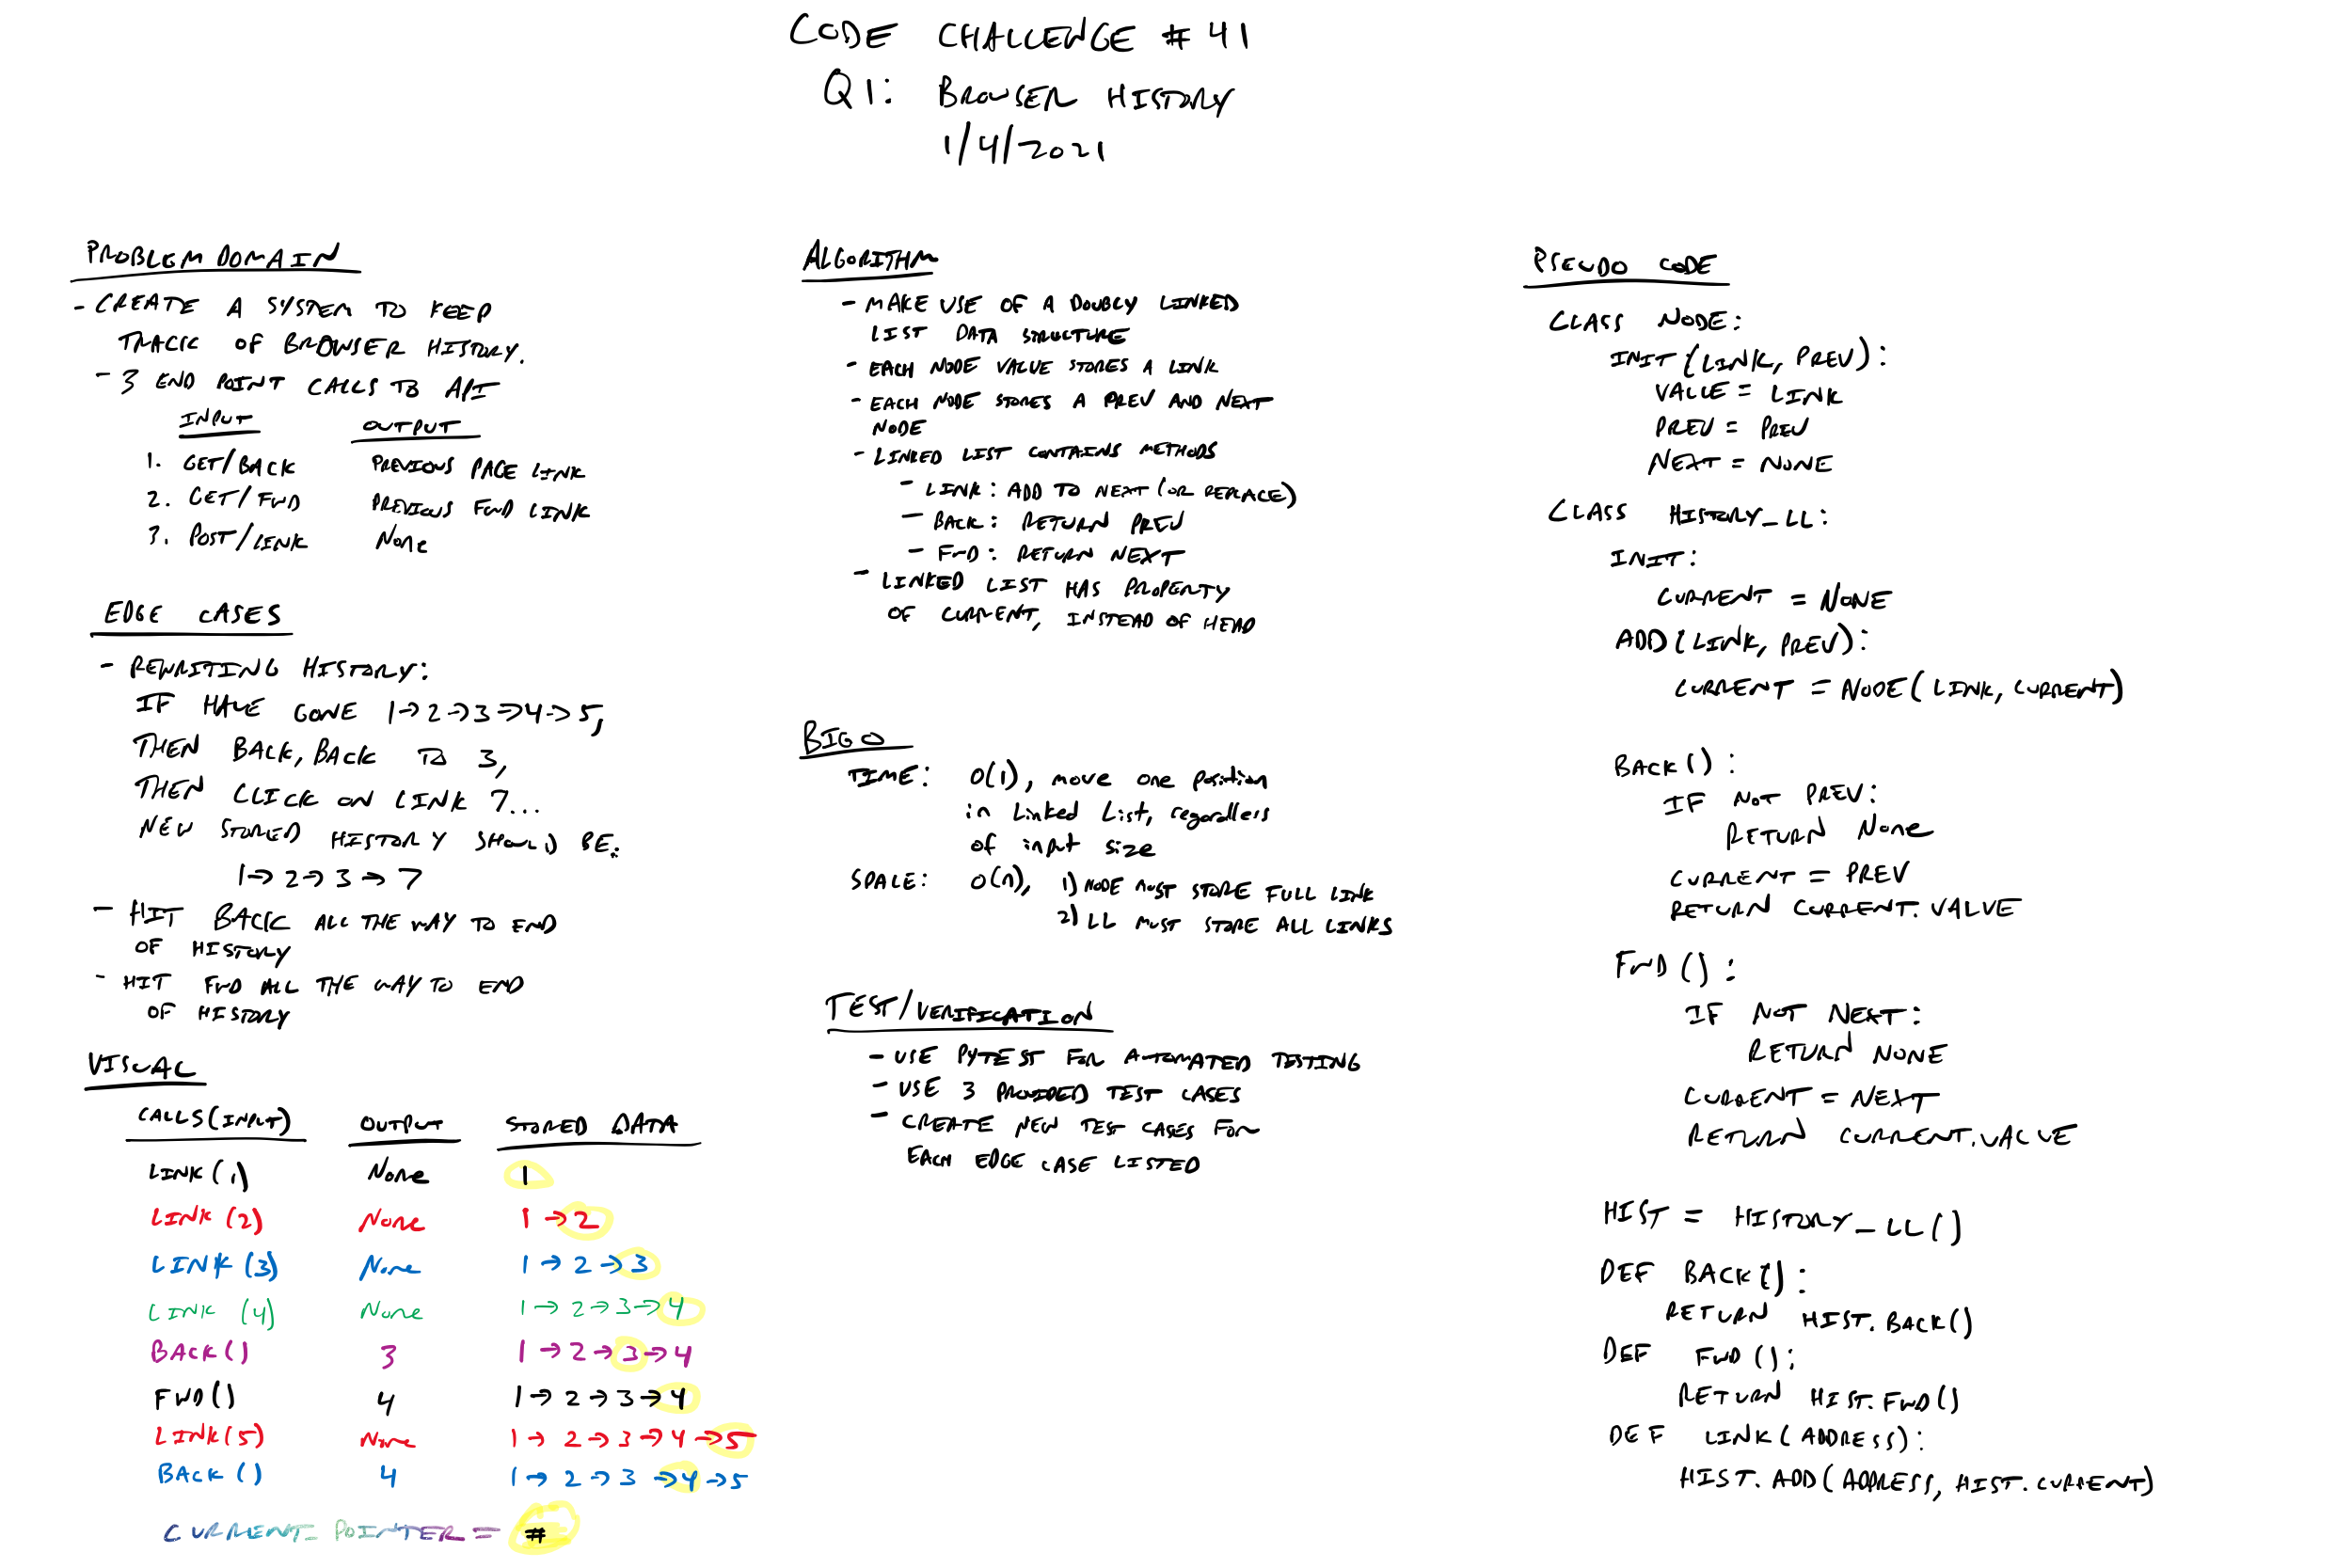 CODE CHALLENGE # 41
Q1: BROWSER HISTORY
1/4/2021
PROBLEM DOMAIN
- CREATE A SYSTEM TO KEEP
TRACK OF BROWSER HISTORY.
- 3 END POINT CALLS TO API
INPUT OUTPUT
1. GET/BACK PREVIOUS PAGE LINK
2. GET/FWD PREVIOUS FWD LINK
3. POST/LINK None
EDGE CASES
- REWRITING HISTORY:
IF HAVE GONE 1→2→3→4→5,
THEN BACK, BACK TO 3,
THEN CLICK ON LINK 7...
NEW STORED HISTORY SHOULD BE:
1→2→3→7
- HIT BACK ALL THE WAY TO END
OF HISTORY
- HIT FWD ALL THE WAY TO END
OF HISTORY
VISUAL
CALLS (INPUT) OUTPUT STORED DATA
LINK(1) None 1
LINK(2) None 1→2
LINK(3) None 1→2→3
LINK(4) None 1→2→3→4
BACK() 3 1→2→3→4
FWD() 4 1→2→3→4
LINK(5) None 1→2→3→4→5
BACK() 4 1→2→3→4→5
CURRENT POINTER = #
ALGORITHM
- MAKE USE OF A DOUBLY LINKED
LIST DATA STRUCTURE
- EACH NODE VALUE STORES A LINK
- EACH NODE STORES A PREV AND NEXT
NODE
- LINKED LIST CONTAINS METHODS
- LINK: ADD TO NEXT (OR REPLACE)
- BACK: RETURN PREV
- FWD: RETURN NEXT
- LINKED LIST HAS PROPERTY
OF CURRENT, INSTEAD OF HEAD
BIG O
TIME: O(1), move one position
in Linked List, regardless
of input size
SPACE: O(n), 1) NODE MUST STORE FULL LINK
2) LL MUST STORE ALL LINKS
TEST/VERIFICATION
- USE PYTEST FOR AUTOMATED TESTING
- USE 3 PROVIDED TEST CASES
- CREATE NEW TEST CASES FOR
EACH EDGE CASE LISTED
PSEUDO CODE
CLASS NODE:
INIT (LINK, PREV):
VALUE = LINK
PREV = PREV
NEXT = NONE
CLASS HISTORY_LL:
INIT:
CURRENT = NONE
ADD (LINK, PREV):
CURRENT = NODE(LINK, CURRENT)
BACK():
IF NOT PREV:
RETURN None
CURRENT = PREV
RETURN CURRENT.VALUE
FWD():
IF NOT NEXT:
RETURN NONE
CURRENT = NEXT
RETURN CURRENT.VALUE
HIST = HISTORY_LL()
DEF BACK():
RETURN HIST.BACK()
DEF FWD():
RETURN HIST.FWD()
DEF LINK(ADDRESS):
HIST.ADD(ADDRESS, HIST.CURRENT)